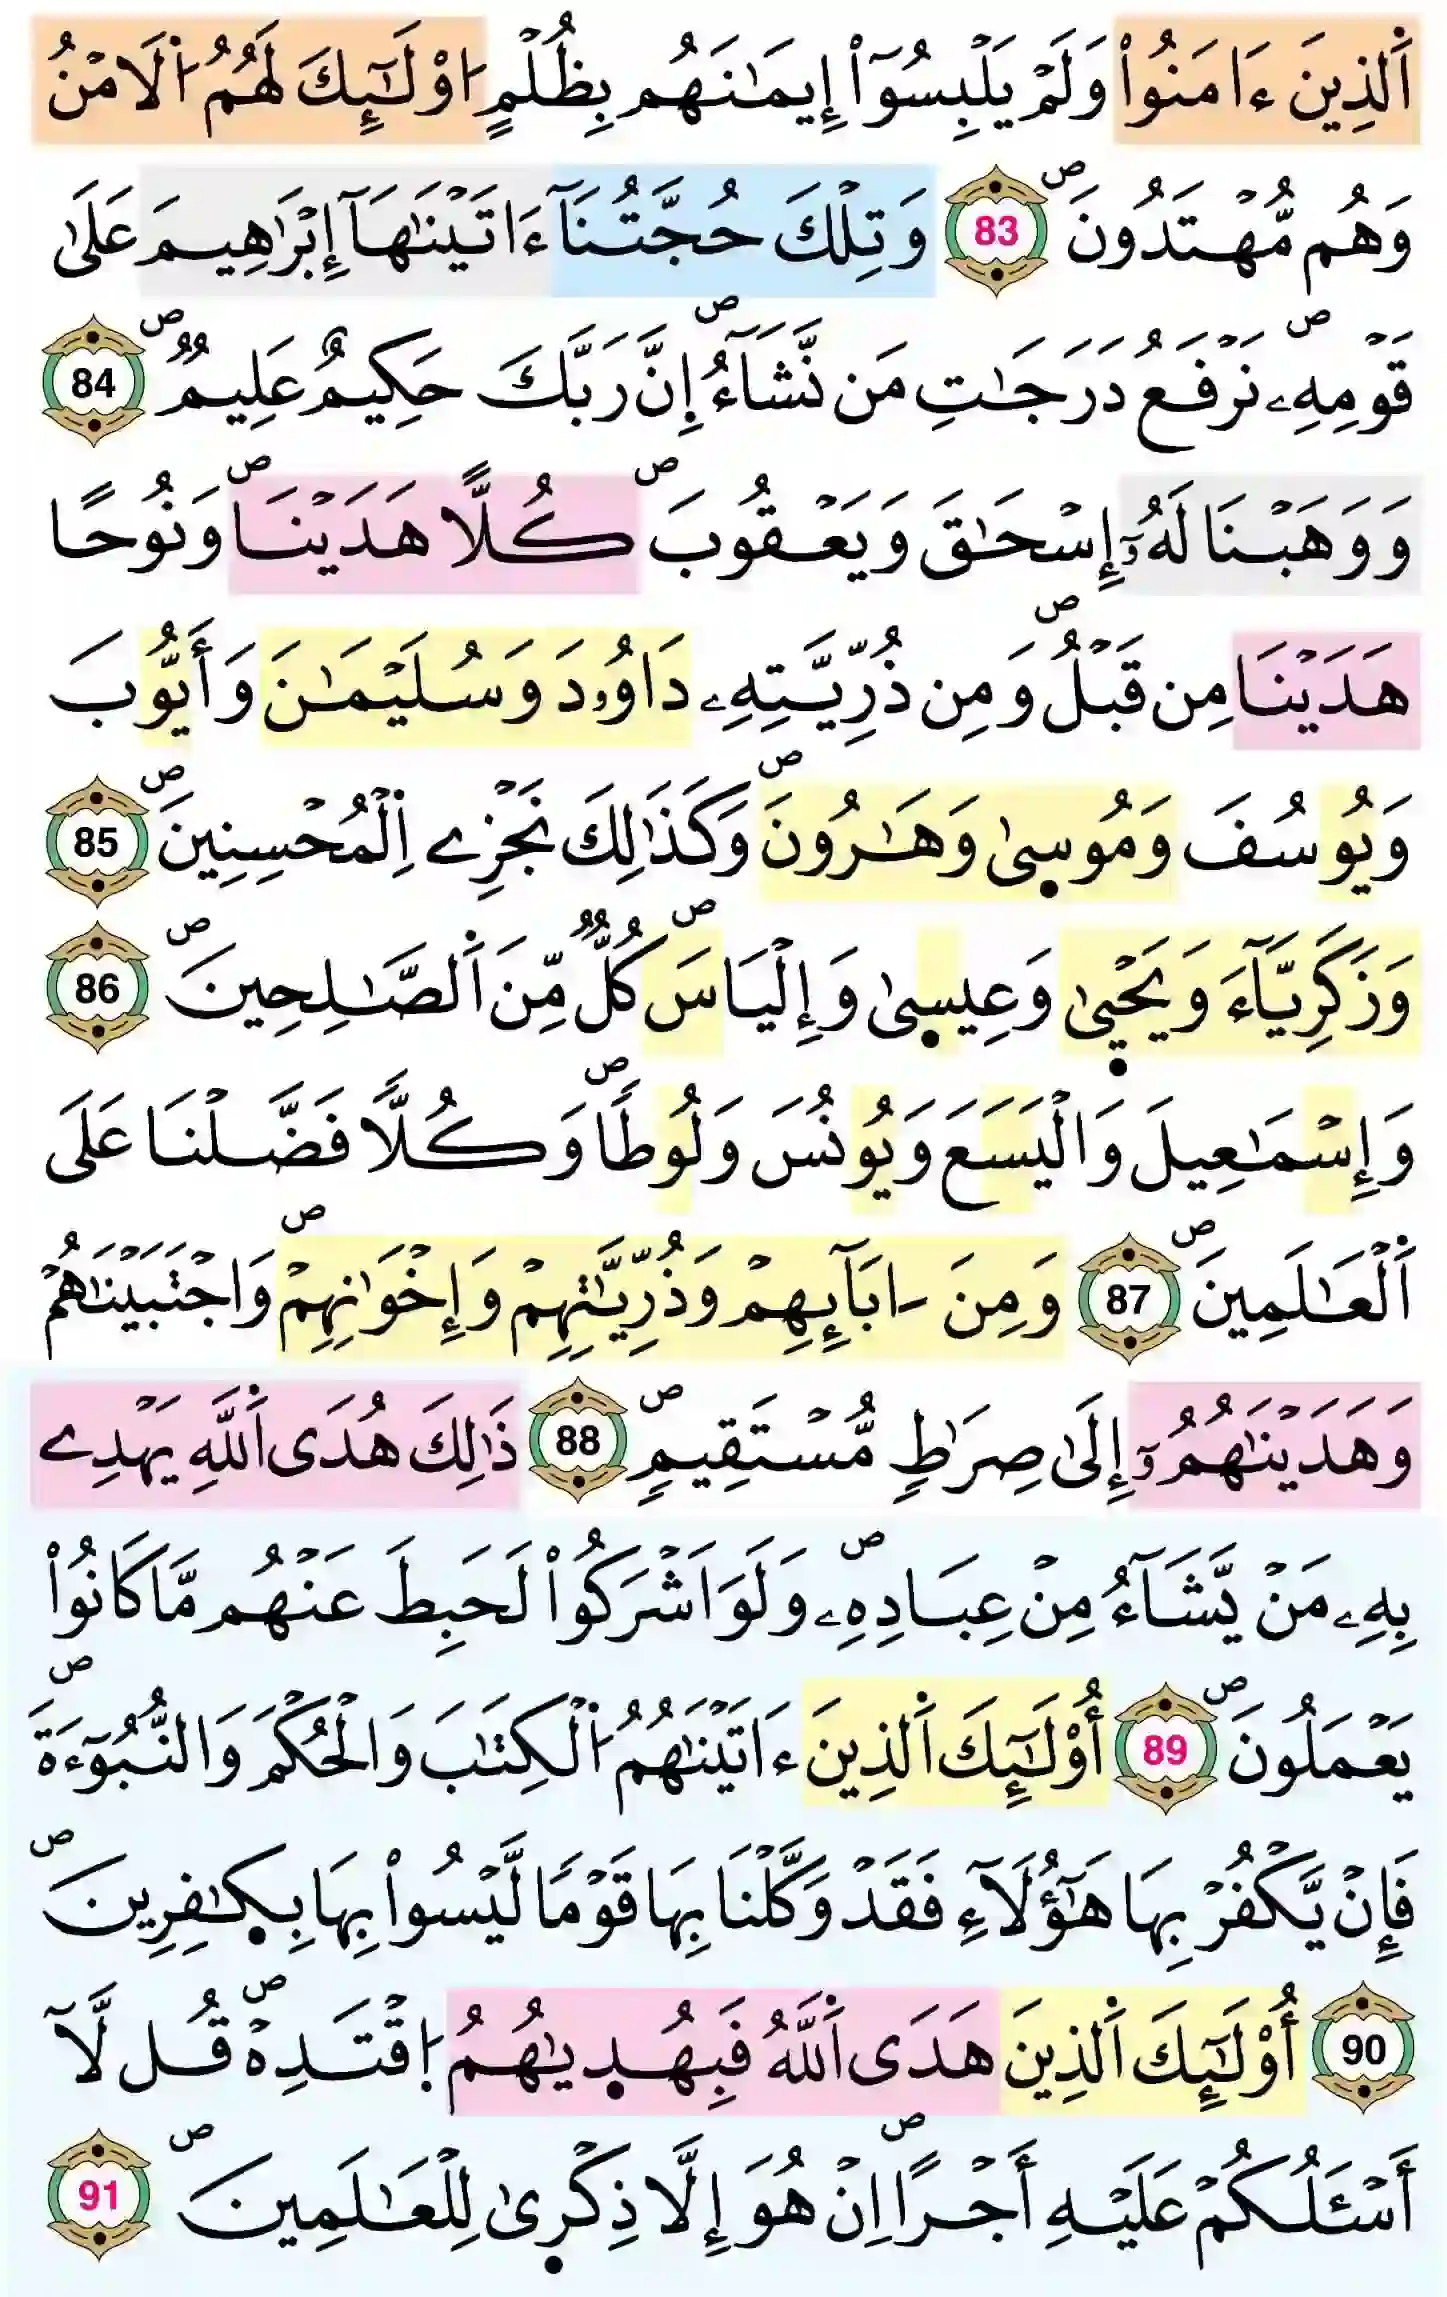 اَ۬لذِينَ ءَامَنُواْ وَلَمْ يَلْبِسُوٓاْ إِيمَٰنَهُم بِظُلْمٍ ا۟وْلَٰٓئِكَ لَهُمُ اُ۬لَامْنُ
وَهُم مُّهْتَدُونَۖ 83 وَتِلْكَ حُجَّتُنَآ ءَاتَيْنَٰهَآ إِبْرَٰهِيمَ عَلَىٰ
قَوْمِهِۦۖ نَرْفَعُ دَرَجَٰتِ مَن نَّشَآءُۖ إِنَّ رَبَّكَ حَكِيمٌ عَلِيمٌۖ 84
وَوَهَبْنَا لَهُۥٓ إِسْحَٰقَ وَيَعْقُوبَۖ كُلّاً هَدَيْنَاۖ وَنُوحاً
هَدَيْنَا مِن قَبْلُۖ وَمِن ذُرِّيَّتِهِۦ دَاوُۥدَ وَسُلَيْمَٰنَ وَأَيُّوبَ
وَيُوسُفَ وَمُوسىٰ وَهَٰرُونَۖ وَكَذَٰلِكَ نَجْزِے اِ۬لْمُحْسِنِينَۖ 85
وَزَكَرِيَّآءَ وَيَحْيىٰ وَعِيسىٰ وَإِلْيَاسَۖ كُلٌّ مِّنَ اَ۬لصَّٰلِحِينَۖ 86
وَإِسْمَٰعِيلَ وَالْيَسَعَ وَيُونُسَ وَلُوطاًۖ وَكُلّاً فَضَّلْنَا عَلَى
اَ۬لْعَٰلَمِينَۖ 87 وَمِنَ اٰبَآئِهِمْ وَذُرِّيَّٰتِهِمْ وَإِخْوَٰنِهِمْۖ وَاجْتَبَيْنَٰهُمْ
وَهَدَيْنَٰهُمُۥٓ إِلَىٰ صِرَٰطٍ مُّسْتَقِيمٍۖ 88 ذَٰلِكَ هُدَى اَ۬للَّهِ يَهْدِے
بِهِۦ مَنْ يَّشَآءُ مِنْ عِبَادِهِۦۖ وَلَوَ اَشْرَكُواْ لَحَبِطَ عَنْهُم مَّا كَانُواْ
يَعْمَلُونَۖ 89 أُوْلَٰٓئِكَ اَ۬لذِينَ ءَاتَيْنَٰهُمُ اُ۬لْكِتَٰبَ وَالْحُكْمَ وَالنُّبُوٓءَةَۖ
فَإِنْ يَّكْفُرْ بِهَا هَٰٓؤُلَآءِ فَقَدْ وَكَّلْنَا بِهَا قَوْماً لَّيْسُواْ بِهَا بِكٰ۪فِرِينَۖ
90 أُوْلَٰٓئِكَ اَ۬لذِينَ هَدَى اَ۬للَّهُ فَبِهُد۪يٰهُمُ اُ۪قْتَدِهْۖ قُل لَّآ
أَسْـَٔلُكُمْ عَلَيْهِ أَجْراًۖ اِنْ هُوَ إِلَّا ذِكْر۪ىٰ لِلْعَٰلَمِينَۖ 91